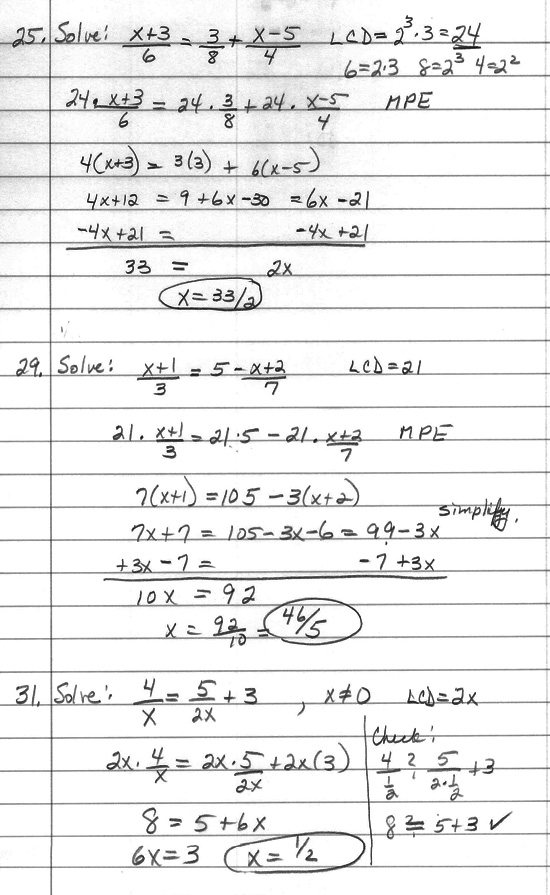 25. Solve: (x+3)/6 = 3/8 + (x-5)/4 LCD = 2³·3 = 24
6=2·3 8=2³ 4=2²
24·(x+3)/6 = 24·3/8 + 24·(x-5)/4 MPE
4(x+3) = 3(3) + 6(x-5)
4x+12 = 9+6x-30 = 6x-21
-4x+21 = -4x+21
33 = 2x
x = 33/2
29. Solve: (x+1)/3 = 5 - (x+2)/7 LCD = 21
21·(x+1)/3 = 21·5 - 21·(x+2)/7 MPE
7(x+1) = 105 - 3(x+2)
7x+7 = 105-3x-6 = 99-3x simplify.
+3x-7 = -7+3x
10x = 92
x = 92/10 = 46/5
31. Solve: 4/x = 5/2x + 3, x≠0 LCD = 2x
Check:
2x·4/x = 2x·5/2x + 2x(3) 4/(1/2) ≟ 5/(2·1/2) + 3
8 = 5+6x 8 ≟ 5+3 ✓
6x = 3 x = 1/2